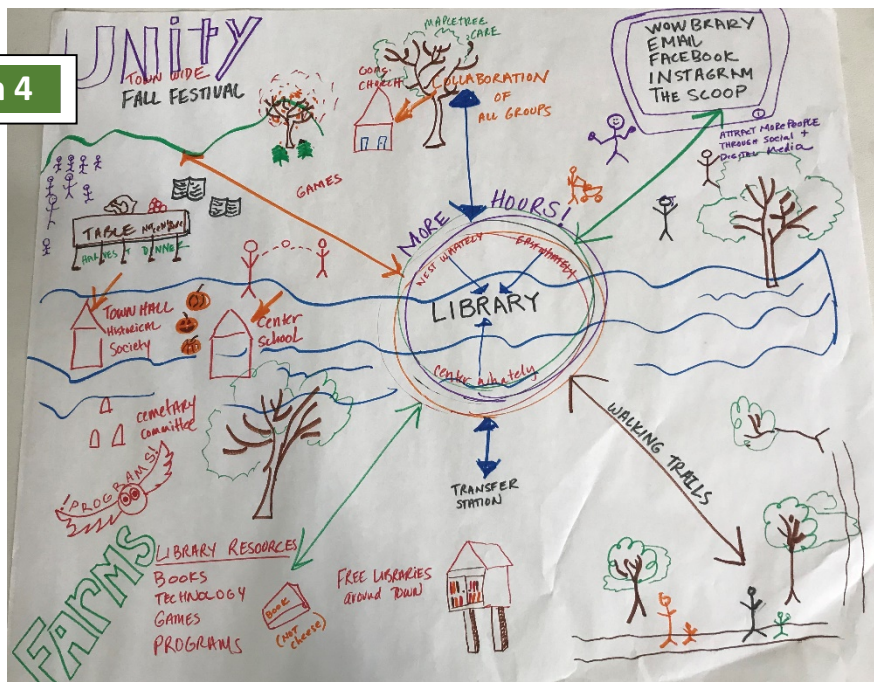 n 4
UNITY
TOWN WIDE
FALL FESTIVAL
MAPLE TREE
CARE
CONG.
CHURCH
COLLABORATION
OF
ALL GROUPS
WOWBRARY
EMAIL
FACEBOOK
INSTAGRAM
THE SCOOP
ATTRACT MORE PEOPLE
THROUGH Social +
Digital Media
GAMES
TABLE
HARVEST DINNER
MORE HOURS!
WEST WHATELY
EAST WHATELY
LIBRARY
Center Whately
TOWN HALL
Historical
Society
Center
School
CEMETARY
Committee
!PROGRAMS!
FARMS
LIBRARY RESOURCES
BOOKS
TECHNOLOGY
GAMES
PROGRAMS
BOOK
(NOT
cheese)
FREE LIBRARIES
around TOWN
TRANSFER
STATION
WALKING TRAILS